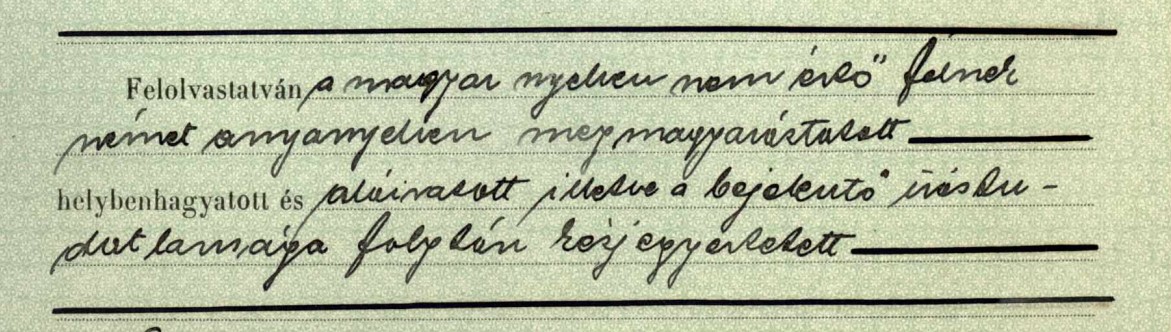 Felolvastatván a magyar nyelven nem értő félnek
német anyanyelven megmagyaráztatott
helybenhagyatott és aláiratott illetve a bejelentő írástu-
datlansága folytán kézjegyeztetett